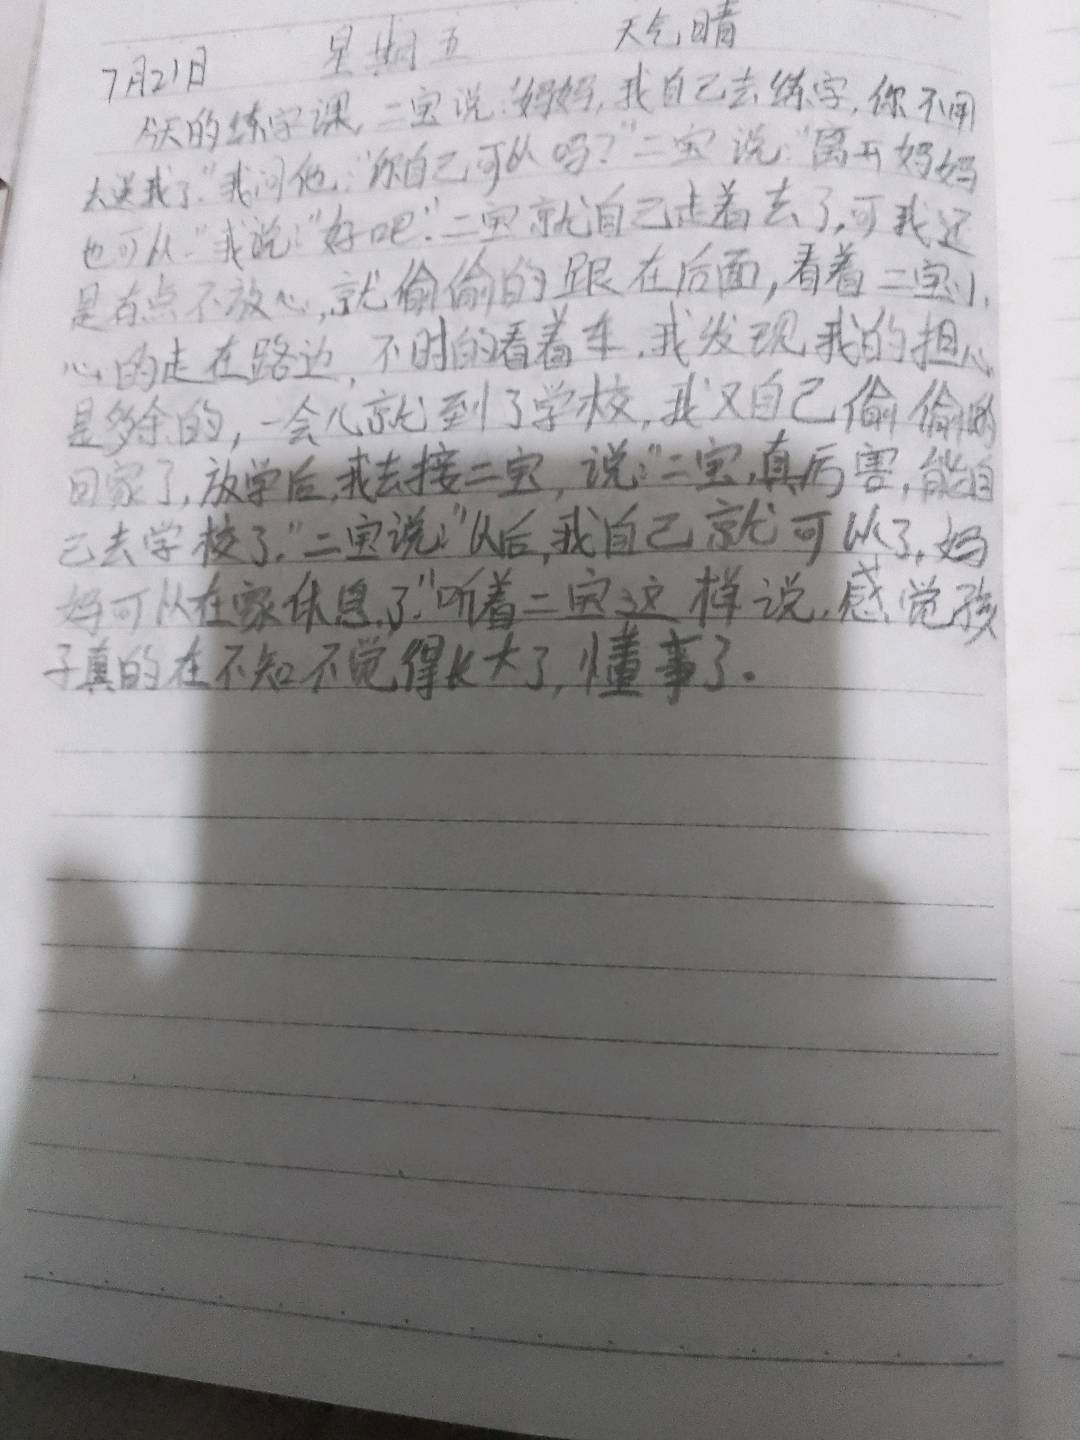 7月21日 星期五 天气晴
今天的练字课,二宝说:"妈妈,我自己去练字,你不用
去送我了."我问他:"你自己可以吗?"二宝说:"离开妈妈
也可以."我说:"好吧".二宝就自己走着去了,可我还
是有点不放心,就偷偷的跟在后面,看着二宝小
心的走在路边,不时的看着车,我发现我的担心
是多余的,一会儿就到了学校,我又自己偷偷的
回家了,放学后,我去接二宝,说:"二宝,真厉害,能自
己去学校了."二宝说:"以后,我自己就可以了,妈
妈可以在家休息了."听着二宝这样说,感觉孩
子真的在不知不觉得长大了,懂事了.